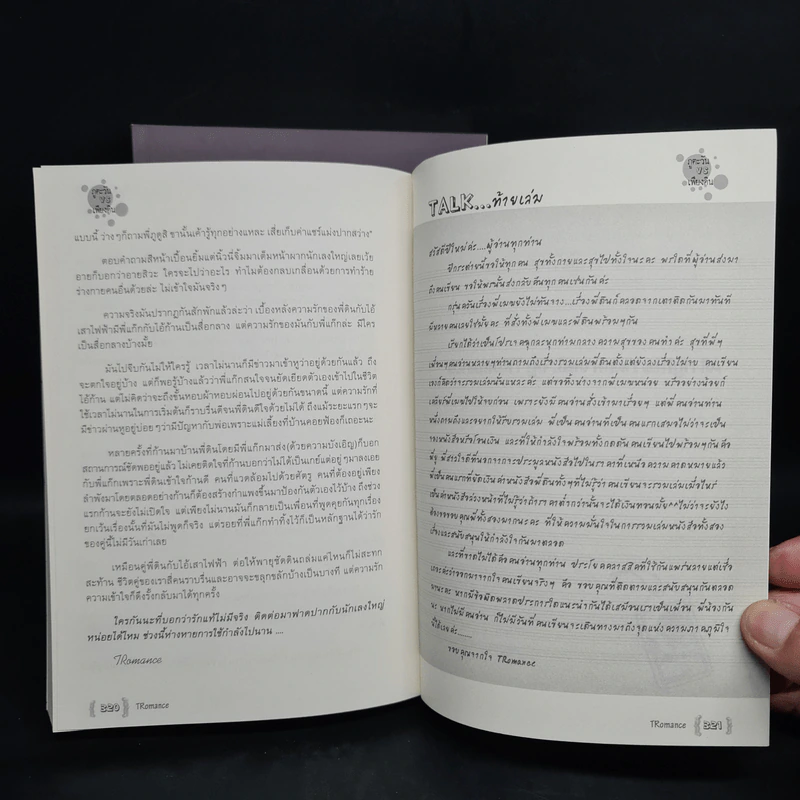 ภูตะวัน
VS
เพียงดิน
แบบนี้ ว่างๆก็ถามพี่ภูดูสิ ชานั้นเค้ารู้ทุกอย่างแหละ เสียเก็บค่าแชร์แม่งปากสว่าง"
ตอบคำถามสีหน้าเปื้อนยิ้มแต่นิ้วนี่จิ้มมาเต็มหน้าผากนักเลงใหญ่เลยเว้ย
อายก็บอกว่าอายสิวะ ใครจะไปว่าอะไร ทำไมต้องกลบเกลื่อนด้วยการทำร้าย
ร่างกายคนอื่นด้วยล่ะ ไม่เข้าใจมันจริงๆ
ความจริงมันปรากฏกันสักพักแล้วล่ะว่า เบื้องหลังความรักของพี่ดินกับไอ้
เสาไฟฟ้ามีพี่แก๊กกับไอ้ก้านเป็นสื่อกลาง แต่ความรักของมันกับพี่แก๊กล่ะ มีใคร
เป็นสื่อกลางบ้างมั้ย
มันไปจีบกันไม่ให้ใครรู้ เวลาไม่นานก็มีข่าวมาเข้าหูว่าอยู่ด้วยกันแล้ว ถึง
จะตกใจอยู่บ้าง แต่ก็พอรู้บ้างแล้วว่าพี่แก๊กสนใจจนยัดเยียดตัวเองเข้าไปในชีวิต
ไอ้ก้าน แต่ไม่คิดว่าจะถึงขั้นหอบผ้าหอบผ่อนไปอยู่ด้วยกันขนาดนี้ แต่ความรักที่
ใช้เวลาไม่นานในการเริ่มต้นก็ราบรื่นดีจนพี่ดินดีใจด้วยไม่ได้ ถึงแม้ระยะแรกๆจะ
มีข่าวผ่านหูอยู่บ่อยๆว่ามีปัญหากับพ่อเพราะแม่เลี้ยงที่บ้านคอยฟ้องก็เถอะนะ
หลายครั้งที่ก้านมาบ้านพี่ดินโดยมีพี่แก๊กมาส่ง(ด้วยความบังเอิญ)ก็บอก
สถานการณ์ชีพคออยู่แล้ว ไม่เคยติดใจที่ก้านบอกว่าไม่ได้เป็นเกย์แต่อยู่ๆมาลงเอย
กับพี่แก๊กเพราะพี่ดินเข้าใจก้านดี คนที่แวดล้อมไปด้วยศัตรู คนที่ต้องอยู่เพียง
ลำพังมาโดยตลอดอย่างก้านก็ต้องสร้างกำแพงขึ้นมาป้องกันตัวเองไว้บ้าง ถึงช่วง
แรกก้านจะยังไม่เปิดใจ แต่เพียงไม่นานมันก็กลายเป็นเพื่อนที่พูดคุยกันทุกเรื่อง
ยกเว้นเรื่องนั้นที่มันไม่พูดก็จริง แต่รอยที่พี่แก๊กทำทิ้งไว้ก็เป็นหลักฐานได้ว่ารัก
ของคู่นี้ไม่มีวันเก่าเลย
เหมือนคู่พี่ดินกับไอ้เสาไฟฟ้า ต่อให้พายุซัดดินถล่มแค่ไหนก็ไม่สะทก
สะท้าน ชีวิตคู่ของเราสี่คนราบรื่นและอาจจะขลุกขลักบ้างเป็นบางที แต่ความรัก
ความเข้าใจก็ดึงรั้งกลับมาได้ทุกครั้ง
ใครกันนะที่บอกว่ารักแท้ไม่มีจริง ติดต่อมาฟาดปากกับนักเลงใหญ่
หน่อยได้ไหม ช่วงนี้ห่างหายการใช้กำลังไปนาน ....
TRomance
320 TRomance
ภูตะวัน
VS
เพียงดิน
TALK...ท้ายเล่ม
สวัสดีปีใหม่ค่ะ....ผู้อ่านทุกท่าน
ปีกระต่ายนี้ขอให้ทุกคน สุขทั้งกายและสุขไปทั้งใจนะคะ พรใดที่ผู้อ่านส่งมา
ถึงคนเขียน ขอให้พรนั้นส่งกลับคืนทุกคนเช่นกันค่ะ
กรุ่นควันเรื่องพี่เมฆยังไม่ทันจาง...เรื่องพี่ดินก็คลอดจากเตาติดกันมาทันที
มีหลายคนเลยใช่มั้ยคะ ที่สั่งทั้งพี่เมฆและพี่ดินพร้อมๆกัน
เรียกได้ว่าเป็นโปรเจคฉุกละหุกท่ามกลางความสุขของคนทำค่ะ สุขที่พี่ๆ
เพื่อนๆคนอ่านหลายๆท่านถามถึงเรื่องรวมเล่มพี่ดินตั้งแต่ยังลงเรื่องไม่จบ คนเขียน
เองก็คิดว่าจะรวมเล่มนั่นแหละค่ะ แต่ขอทิ้งห่างจากพี่เมฆหน่อย หรืออย่างน้อยก็
เคลียร์พี่เมฆไปให้จบก่อน เพราะยังมีคนอ่านสั่งเข้ามาเรื่อยๆ แต่พี่คนอ่านท่าน
หนึ่งถามถึงและอยากให้รีบรวมเล่ม พี่เป็นคนอ่านที่เป็นคนแรกเสมอไม่ว่าจะเป็น
จองหนังสือหรือโอนเงิน และที่ให้กำลังใจพร้อมทั้งกดดันคนเขียนไปพร้อมๆกันคือ
พี่เป็นคนแรกที่ยัดเงินค่าหนังสือพี่ดินทั้งๆที่ไม่รู้ว่าคนเขียนจะรวมเล่มเมื่อไหร่
และที่ขาดไม่ได้คือคนอ่านทุกท่าน ประโยคคลาสสิคที่ใช้กันแพร่หลายแต่เชื่อ
เถอะค่ะว่าออกมาจากใจคนเขียนจริงๆ คือ ขอบคุณที่ติดตามและสนับสนุนกันตลอด
ขอบคุณจากใจ TRomance
TRomance 321